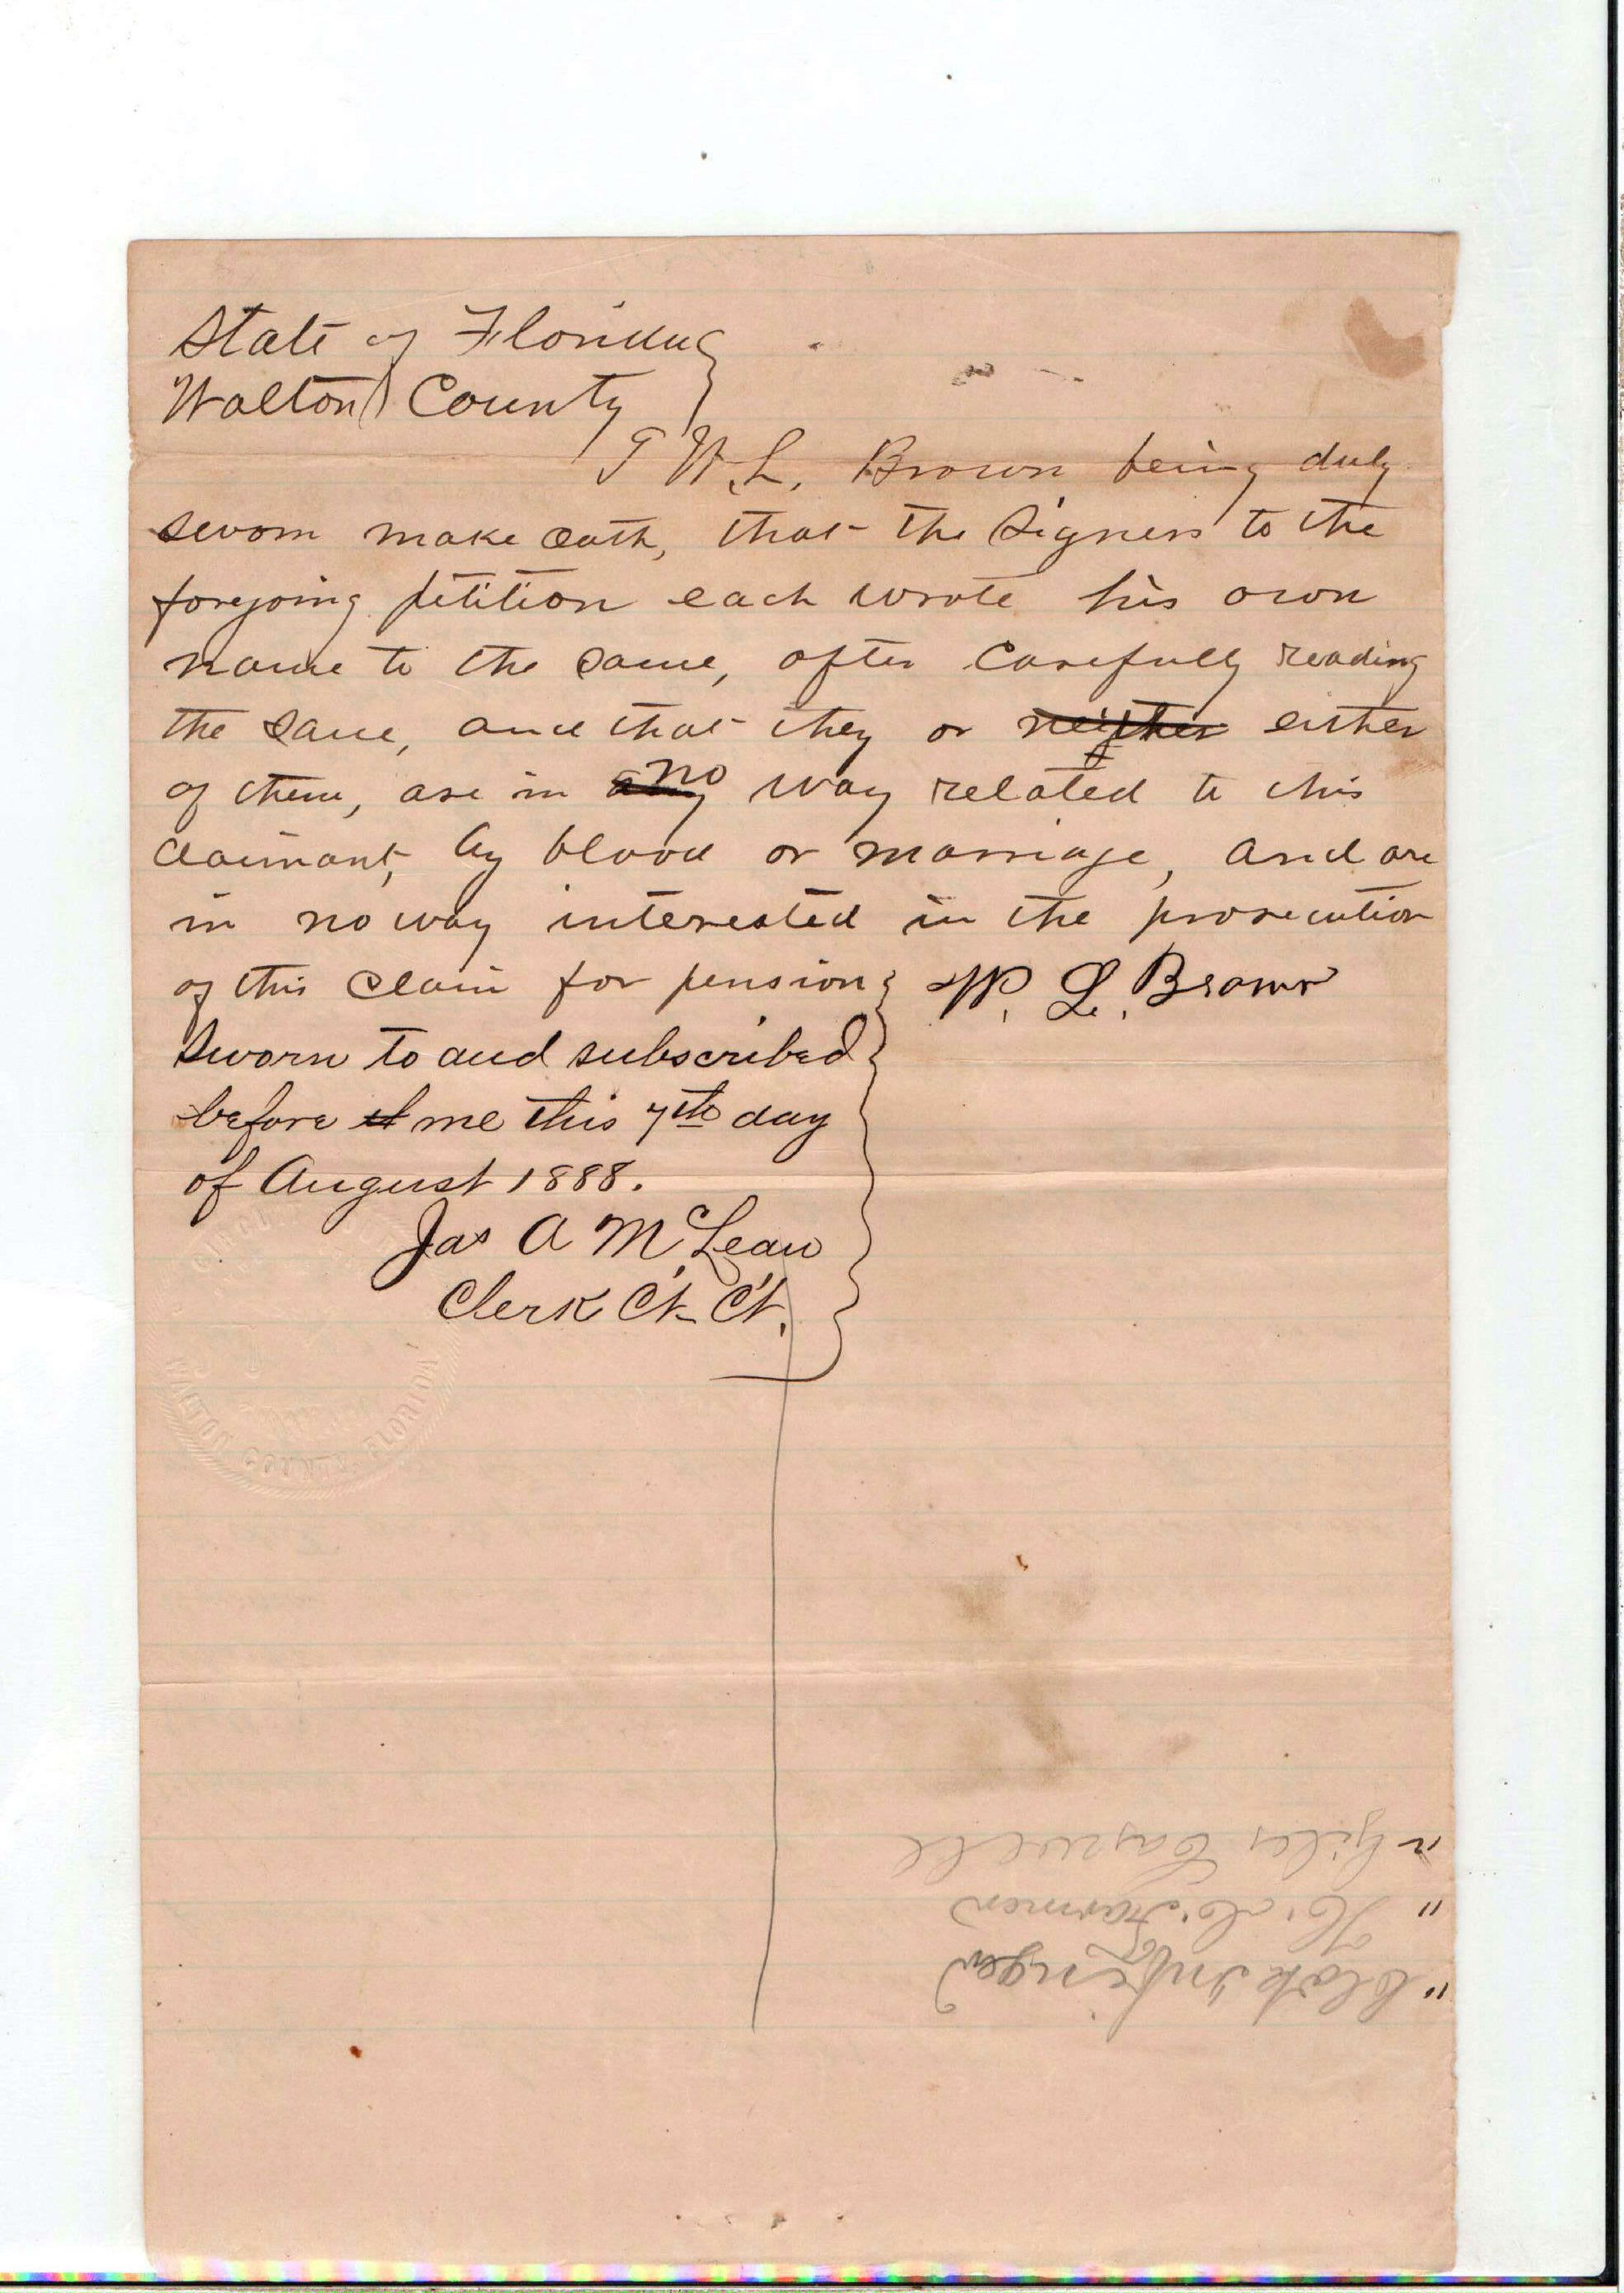 State of Florida
Walton County
I W.L. Brown being duly
sworn make oath, that the signers to the
foregoing petition each wrote his own
name to the same, after carefully reading
the same, and that they or neither either
of them, are in any no way related to this
claimant, by blood or marriage, and are
in no way interested in the prosecution
of this claim for pension; W. L. Brown
Sworn to and subscribed
before me this 7th day
of August 1888.
Jas A McLean
Clerk Ct. Ct.
WALTON COUNTY, FLORIDA
" Giles Caswell
" Farmer
" Clak